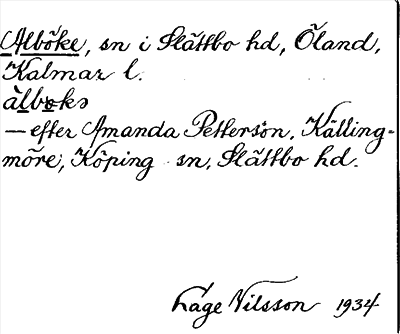 Alböke, sn i Slättbo hd, Öland,
Kalmar l.
àlbøkə
— efter Amanda Petterson, Källing-
möre, Köping sn, Slättbo hd.
Låge Nilsson 1934